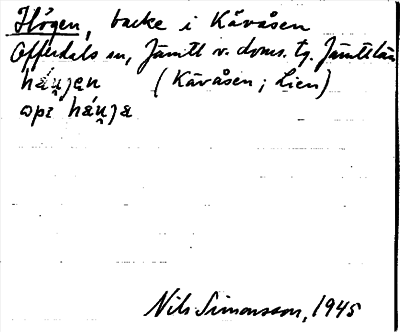 Högen, backe i Kåvåsen
Offerdals sn, Jämtl v. doms. tg. Jämtl län
háu̯jen (Kåvåsen; Lien)
opɪ háu̯ja
Nils Simonsson, 1945